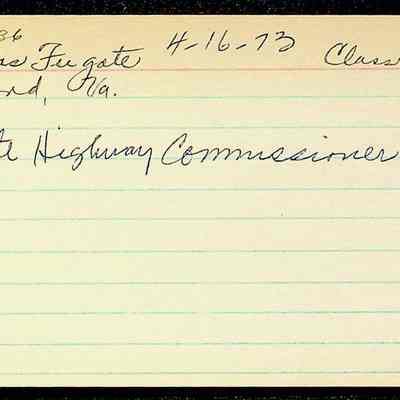 36
as Fugate 4-16-73 Class
ond, Va.
te Highway Commissioner